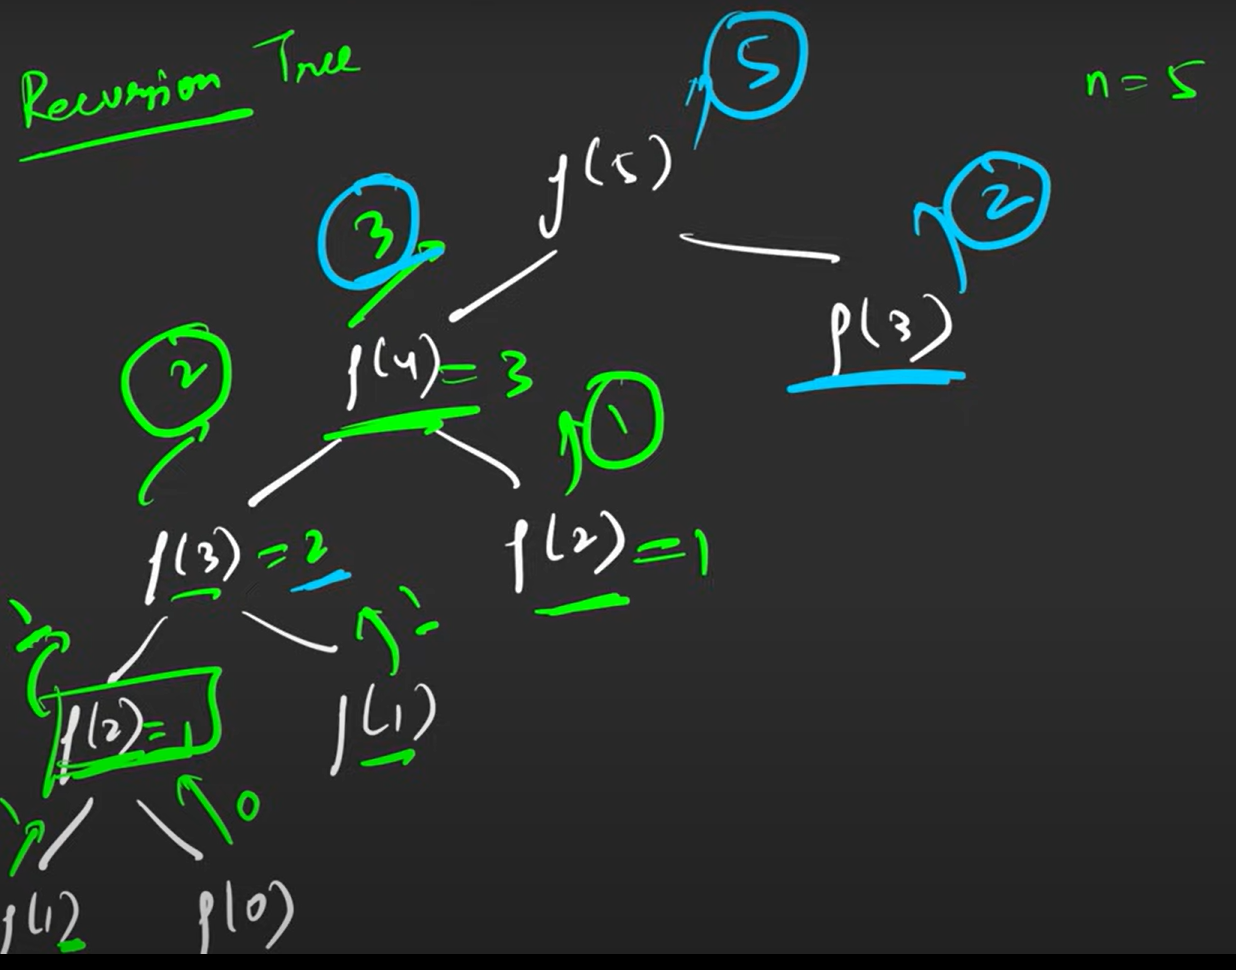 Recursion Tree
5
n = 5
f(5)
3
2
f(4) = 3
f(3)
2
1
f(3) = 2
f(2) = 1
1
1
f(2) = 1
f(1)
1
0
f(1)
f(0)